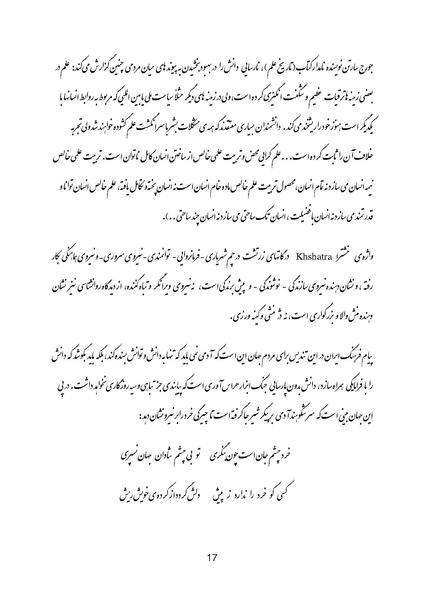 جورج سارتن نویسنده نامدار کتاب (تاریخ علم)، نارسایی دانش را در بهبود بخشیدن به پیوندهای میان مردمی چنین گزارش می‌کند: علم در
بعضی زمینه‌ها ترقیات عظیم و شگفت انگیزی کرده است، ولی در زمینه‌های دیگر مثلاً سیاست ملی یا بین‌المللی که مربوط به روابط انسانها با
یکدیگر است هنوز خود را ریشخند می‌کند. دانشمندان بسیاری معتقدند که همه‌ی مشکلات بشر با سرانگشت علم گشوده خواهند شد ولی تجربه
خلاف آن را ثابت کرده است... علم گرایی محض و تربیت علمی خالص از ساختن انسان کامل ناتوان است. تربیت علمی خالص
نیمه انسان می‌سازد نه تمام انسان، محصول تربیت علم خالص ماده خام انسان است نه انسان پخته و تکامل یافته، علم خالص انسان توانا و
قدرتمند می‌سازد نه انسان با فضیلت، انسان تک ساحتی می‌سازد نه انسان چند ساحتی، ...).
واژه‌ی خشترا Khshatra در گاتهای زرتشت در چم شهریاری - فرمانروایی - توانمندی - نیروی سروری - و نیروی چالشگری بکار
رفته، و نشان دهنده نیروی سازندگی - نوشوندگی - و پیش برندگی است، نه نیروی ویرانگر و تباه کننده، از دیدگاه روانشناسی نیز نشان
دهنده منش والا و بزرگواری است، نه دژمنشی و کینه ورزی.
پیام فرهنگ ایران در این تندیس برای مردم جهان این است که آدمی نمی باید که تنها به دانش و توانش بسنده کند، بلکه باید بکوشد که دانش
را با فرزانگی همراه سازد، دانش بدون پارسایی جنگ ابزار هراس آوری است که پیامدی جز تباهی و سیه روزگاری نخواهد داشت. در پی
این جهان بینی است که سر شکوهمند آدمی بر پیکر شیر جا گرفته است تا چیرگی خرد را بر نیرو نشان دهد:
خرد چشم جان است چون بنگری تو بی چشم شادان جهان نسپری
کسی کو خرد را ندارد ز پیش دلش گردد از کرده‌ی خویش ریش
17